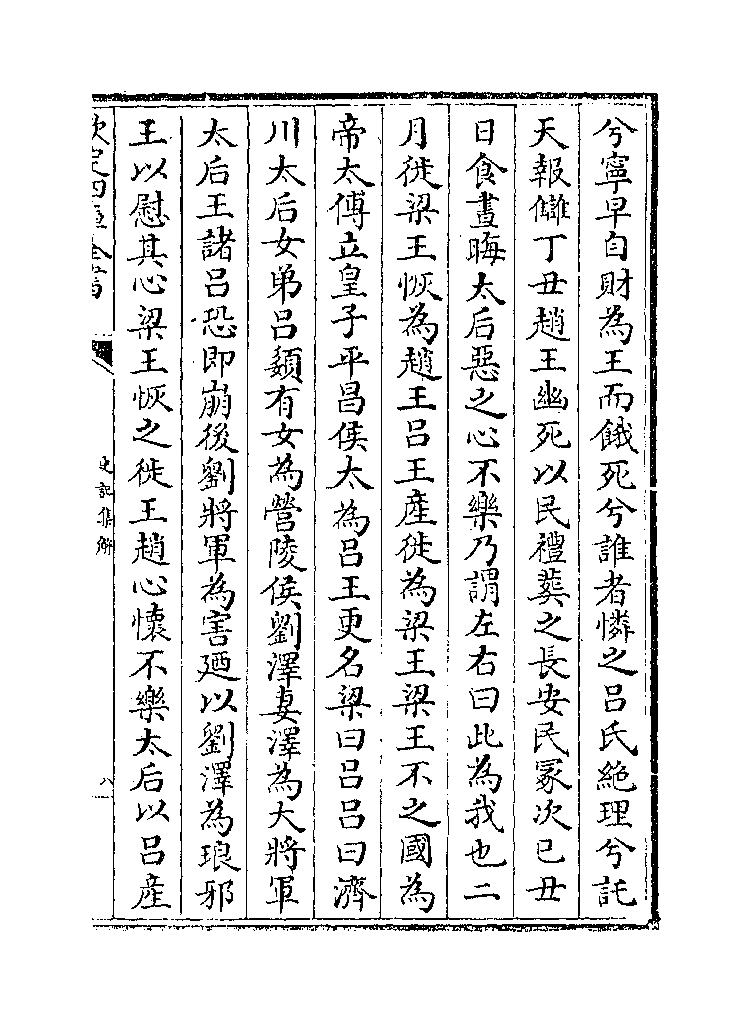 兮寧早自財為王而餓死兮誰者憐之呂氏絶理兮託
天報讎丁丑趙王幽死以民禮葬之長安民冢次已丑
日食晝晦太后惡之心不樂乃謂左右曰此為我也二
月徙梁王恢為趙王呂王產徙為梁王梁王不之國為
帝太傅立皇子平昌侯太為呂王更名梁曰呂呂曰濟
川太后女弟呂嬃有女為營陵侯劉澤妻澤為大將軍
太后王諸呂恐即崩後劉將軍為害廼以劉澤為琅邪
王以慰其心梁王恢之徙王趙心懷不樂太后以呂產
欽定四庫全書
史記集解
八